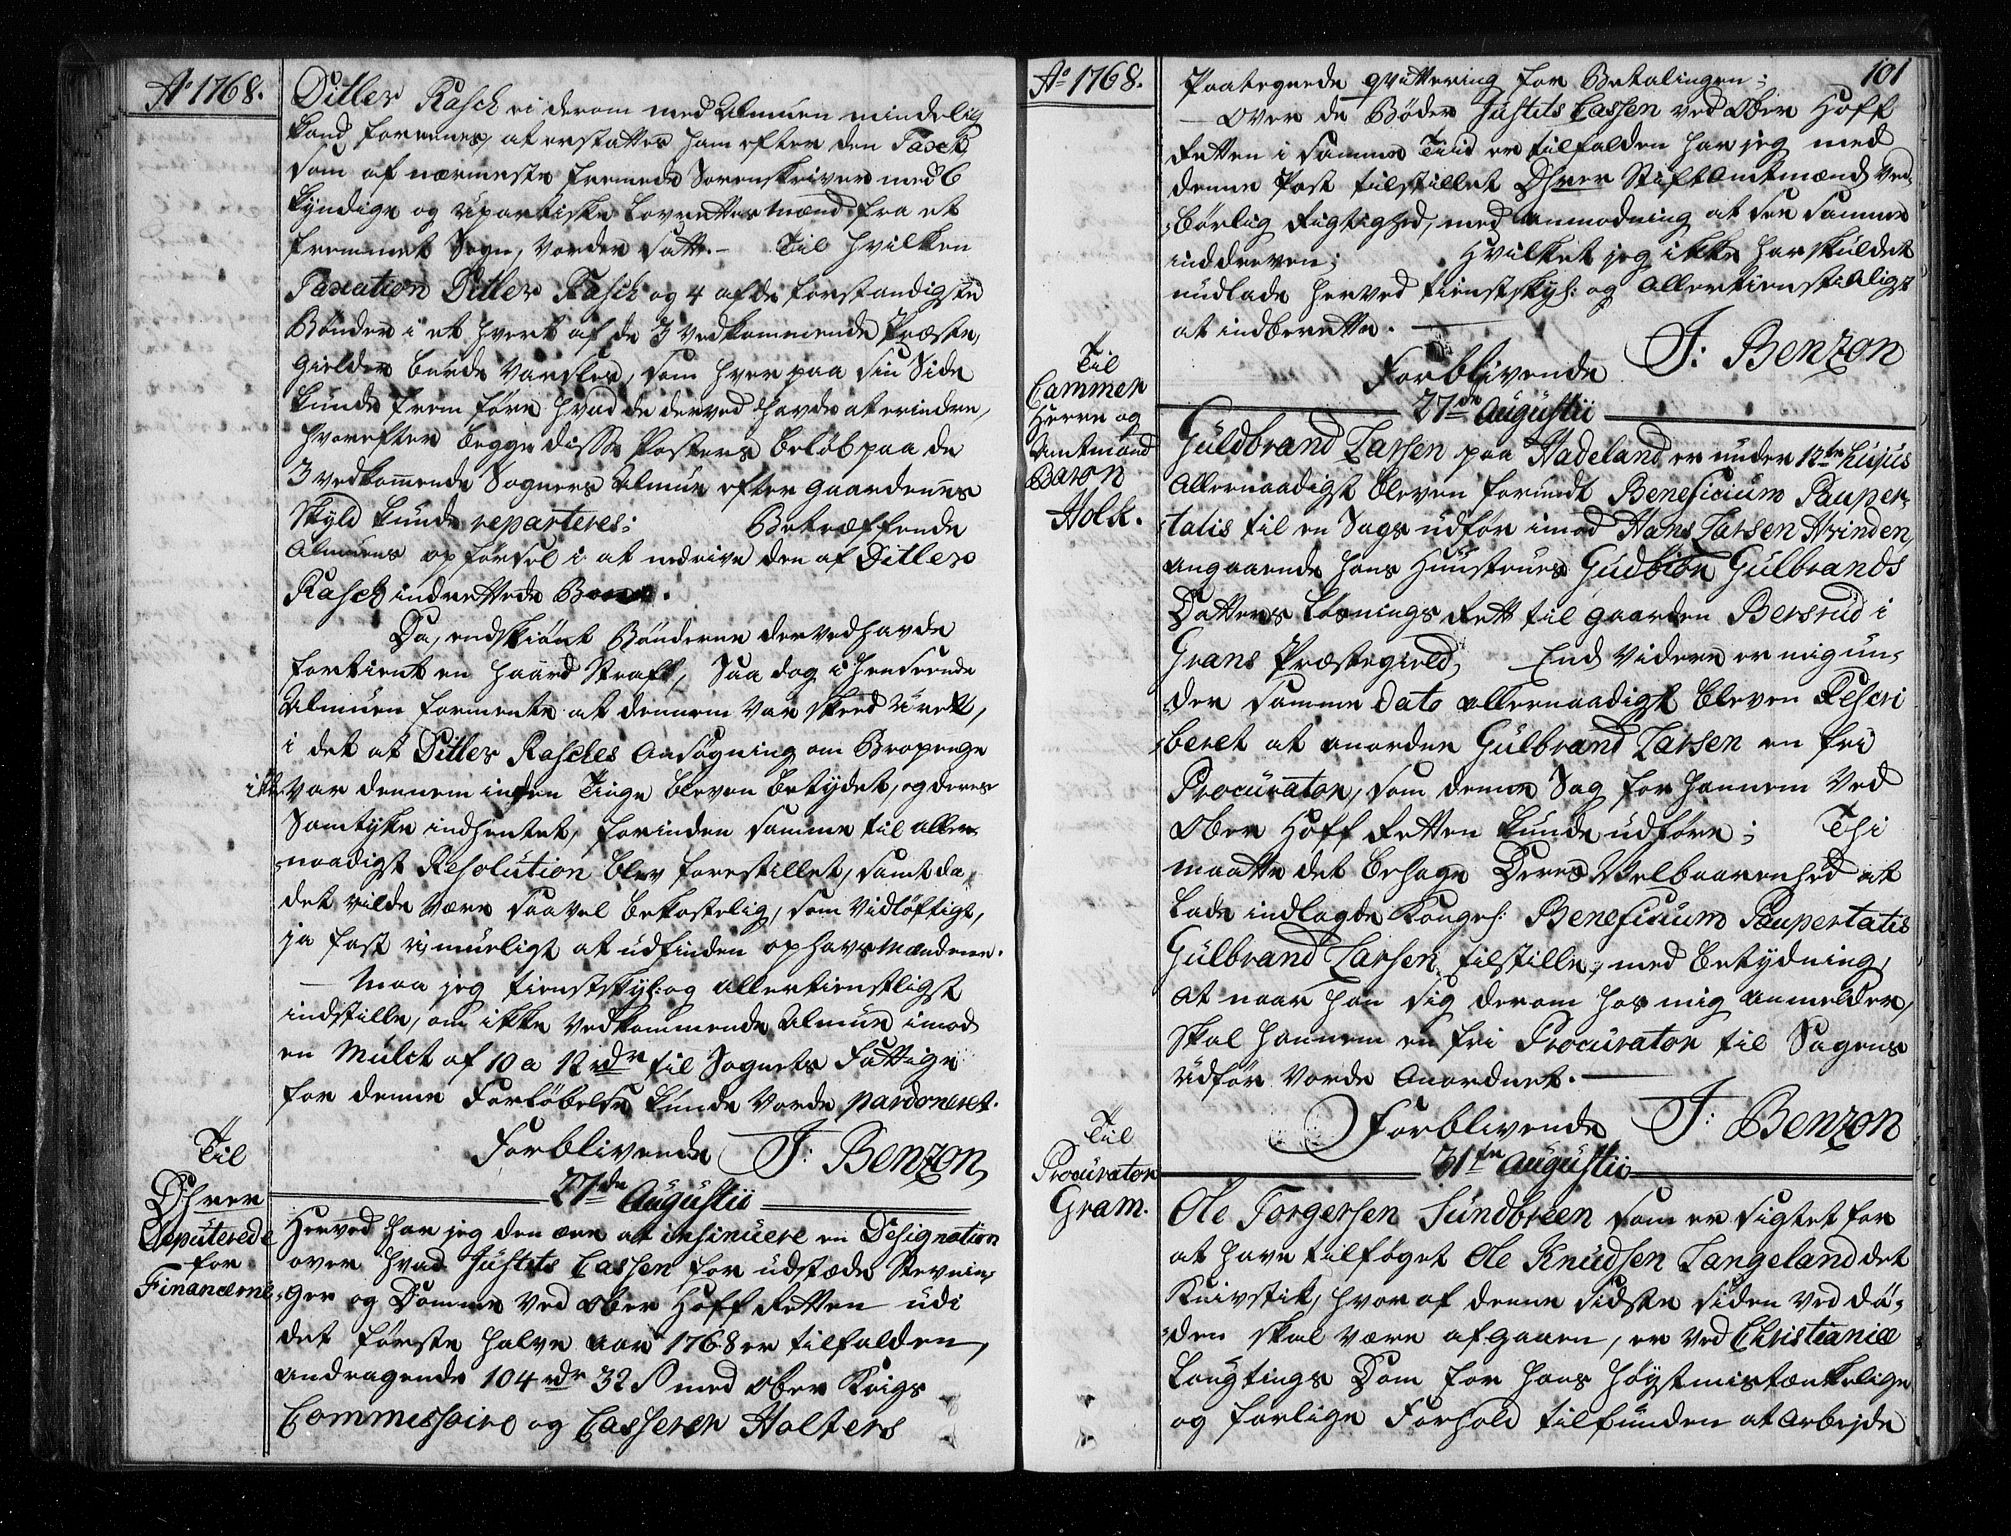 Ao 1768.
Ditlev Rasch ei derom med Almuen mindelig
kand foreenes, at erstattes ham efter den Taxt,
som af nærmeste fremede Sorenskriver med 6
kyndige og upartiske Lovrettes Mænd fra et
fremmet Sogn, vorder satt. – Til hvilken
Taxation Ditlev Rasch og 4 af de forstandigste
Bønder i et hvert af de 3 vedkommende Præste-
gielder burde Varsles, som hver paa sin Side
kunde frem føre hvad de derved havde at erindre,
hvorefter begge disse Posters beløb paa de
3 vedkommende Sogners Almue efter Gaardenes
Skyld kunde reparteres: Betræffende
Almuens opførsel i at nedrive den af Ditlev
Rasch indrettede Boom.
Da, endskiønt Bønderne derved havde
fortient en haard Straff, Saa dog i henseende
Almuen formente at dennem var skeed Urett,
i det at Ditlev Rasches Ansøgning om Bropenge
ikke var dennem inden Tinge bleven betydet, og deres
Samtykke indhentet, forinden samme til aller-
naadigst Resolution blev forestillet, samt da
det vilde være saavel bekostelig, som vidløftigt,
ja fast umueligt at udfinden ophavs Mændene.
– Maa jeg tienstskyl: og allertienstligst
indstille, om ikke Vedkommende Almue imod
en Mulct af 10 a 12 rdr til Sognets Fattige
for denne Forløbelse kunde vorde pardoneret.
Forblivende J: Benzon
27de Augustii
Til
Dhrer
Deputerede
for
Financerne
Herved har jeg den ære at insinuere en Designation
over hvad Justits Cassen for udstæde Stevnin-
ger og Domme ved Ober Hoff Retten udi
det første halve aar 1768 er tilfalden,
andragende 104 rdr 32 s med Ober Krigs
Commissaire og Casserer Holters
Ao 1768.
101
Paategnede qvittering for Betalingen;
– Over de Bøder Justits Cassen ved Ober Hoff
Retten i samme Tiid er tilfalden har jeg med
denne Post tilstillet Dhrer Stiftamtmænd ved-
børlig Rigtighed, med anmodning at see samme
inddreven; Hvilket jeg ikke har skuldet
undlade herved tienstskyl: og Allertienstligst
at indberette.
Forblivende J: Benzon
27de Augustii
Til
Cammer
Herre og
Amtmand
Baron
Holk.
Guldbrand Larsen paa Hadeland er under 12te hujus
Allernaadigst bleven forundt Beneficium Pauper-
tatis til en Sags udfør imod Hans Larsen Hvinden,
angaaende hans Huustrues Gudbiør Gulbrands
Datters Løsnings Rett til Gaarden Bersrud i
Grans Præstegield, End videre er mig un-
der samme dato allernaadigst bleven Rescri
beret at anordne Gulbrand Larsen en fri
Procurator, som denne Sag for hannem ved
Ober Hoff Retten kunde udføre; Thi
maatte det behage Deres Velbaarenhed at
lade indlagde Kongel: Beneficium Paupertatis
Gulbrand Larsen tilstille, med betydning,
at naar han sig derom hos mig anmelder,
skal hannem en fri Procurator til Sagens
Udfør vorde Anordnet.
Forblivende J: Benzon
31te Augustii
Til
Procurator
Gram.
Ole Torgersen Sundbreen som er sigtet for
at have tilføyet Ole Knudsen Langeland det
Knivstik, hvor af denne sidste siden ved Dø-
den skal være afgaaen, er ved Christianiæ
Laugtings Dom for hans høystmistænkelige
og farlige Forhold tilfunden at Arbejde